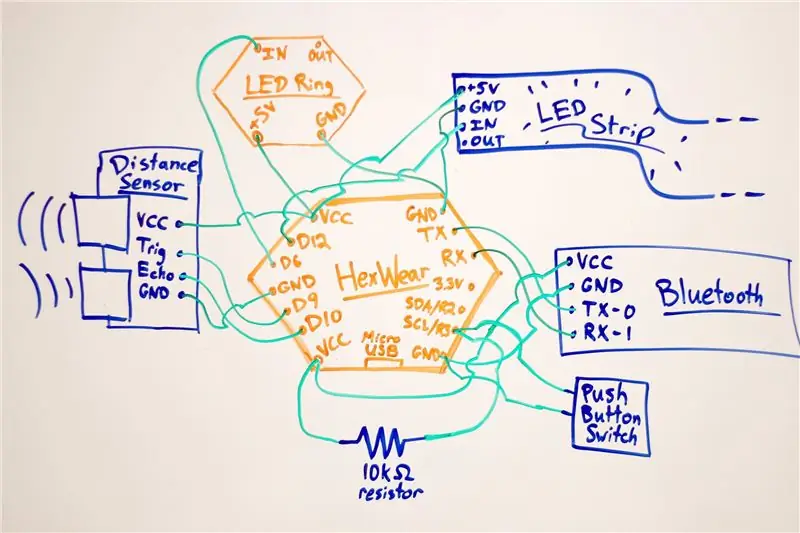 IN
OUT
LED Ring
+5V
GND
+5V
GND
IN
OUT
LED
Strip
Distance
Sensor
VCC
Trig
Echo
GND
VCC
D12
D6
GND
D9
D10
VCC
HexWear
Micro
USB
GND
TX
RX
3.3V
SDA/R2
SCL/R3
GND
VCC
GND
TX-0
RX-1
Bluetooth
Push
Button
Switch
10kΩ
resistor